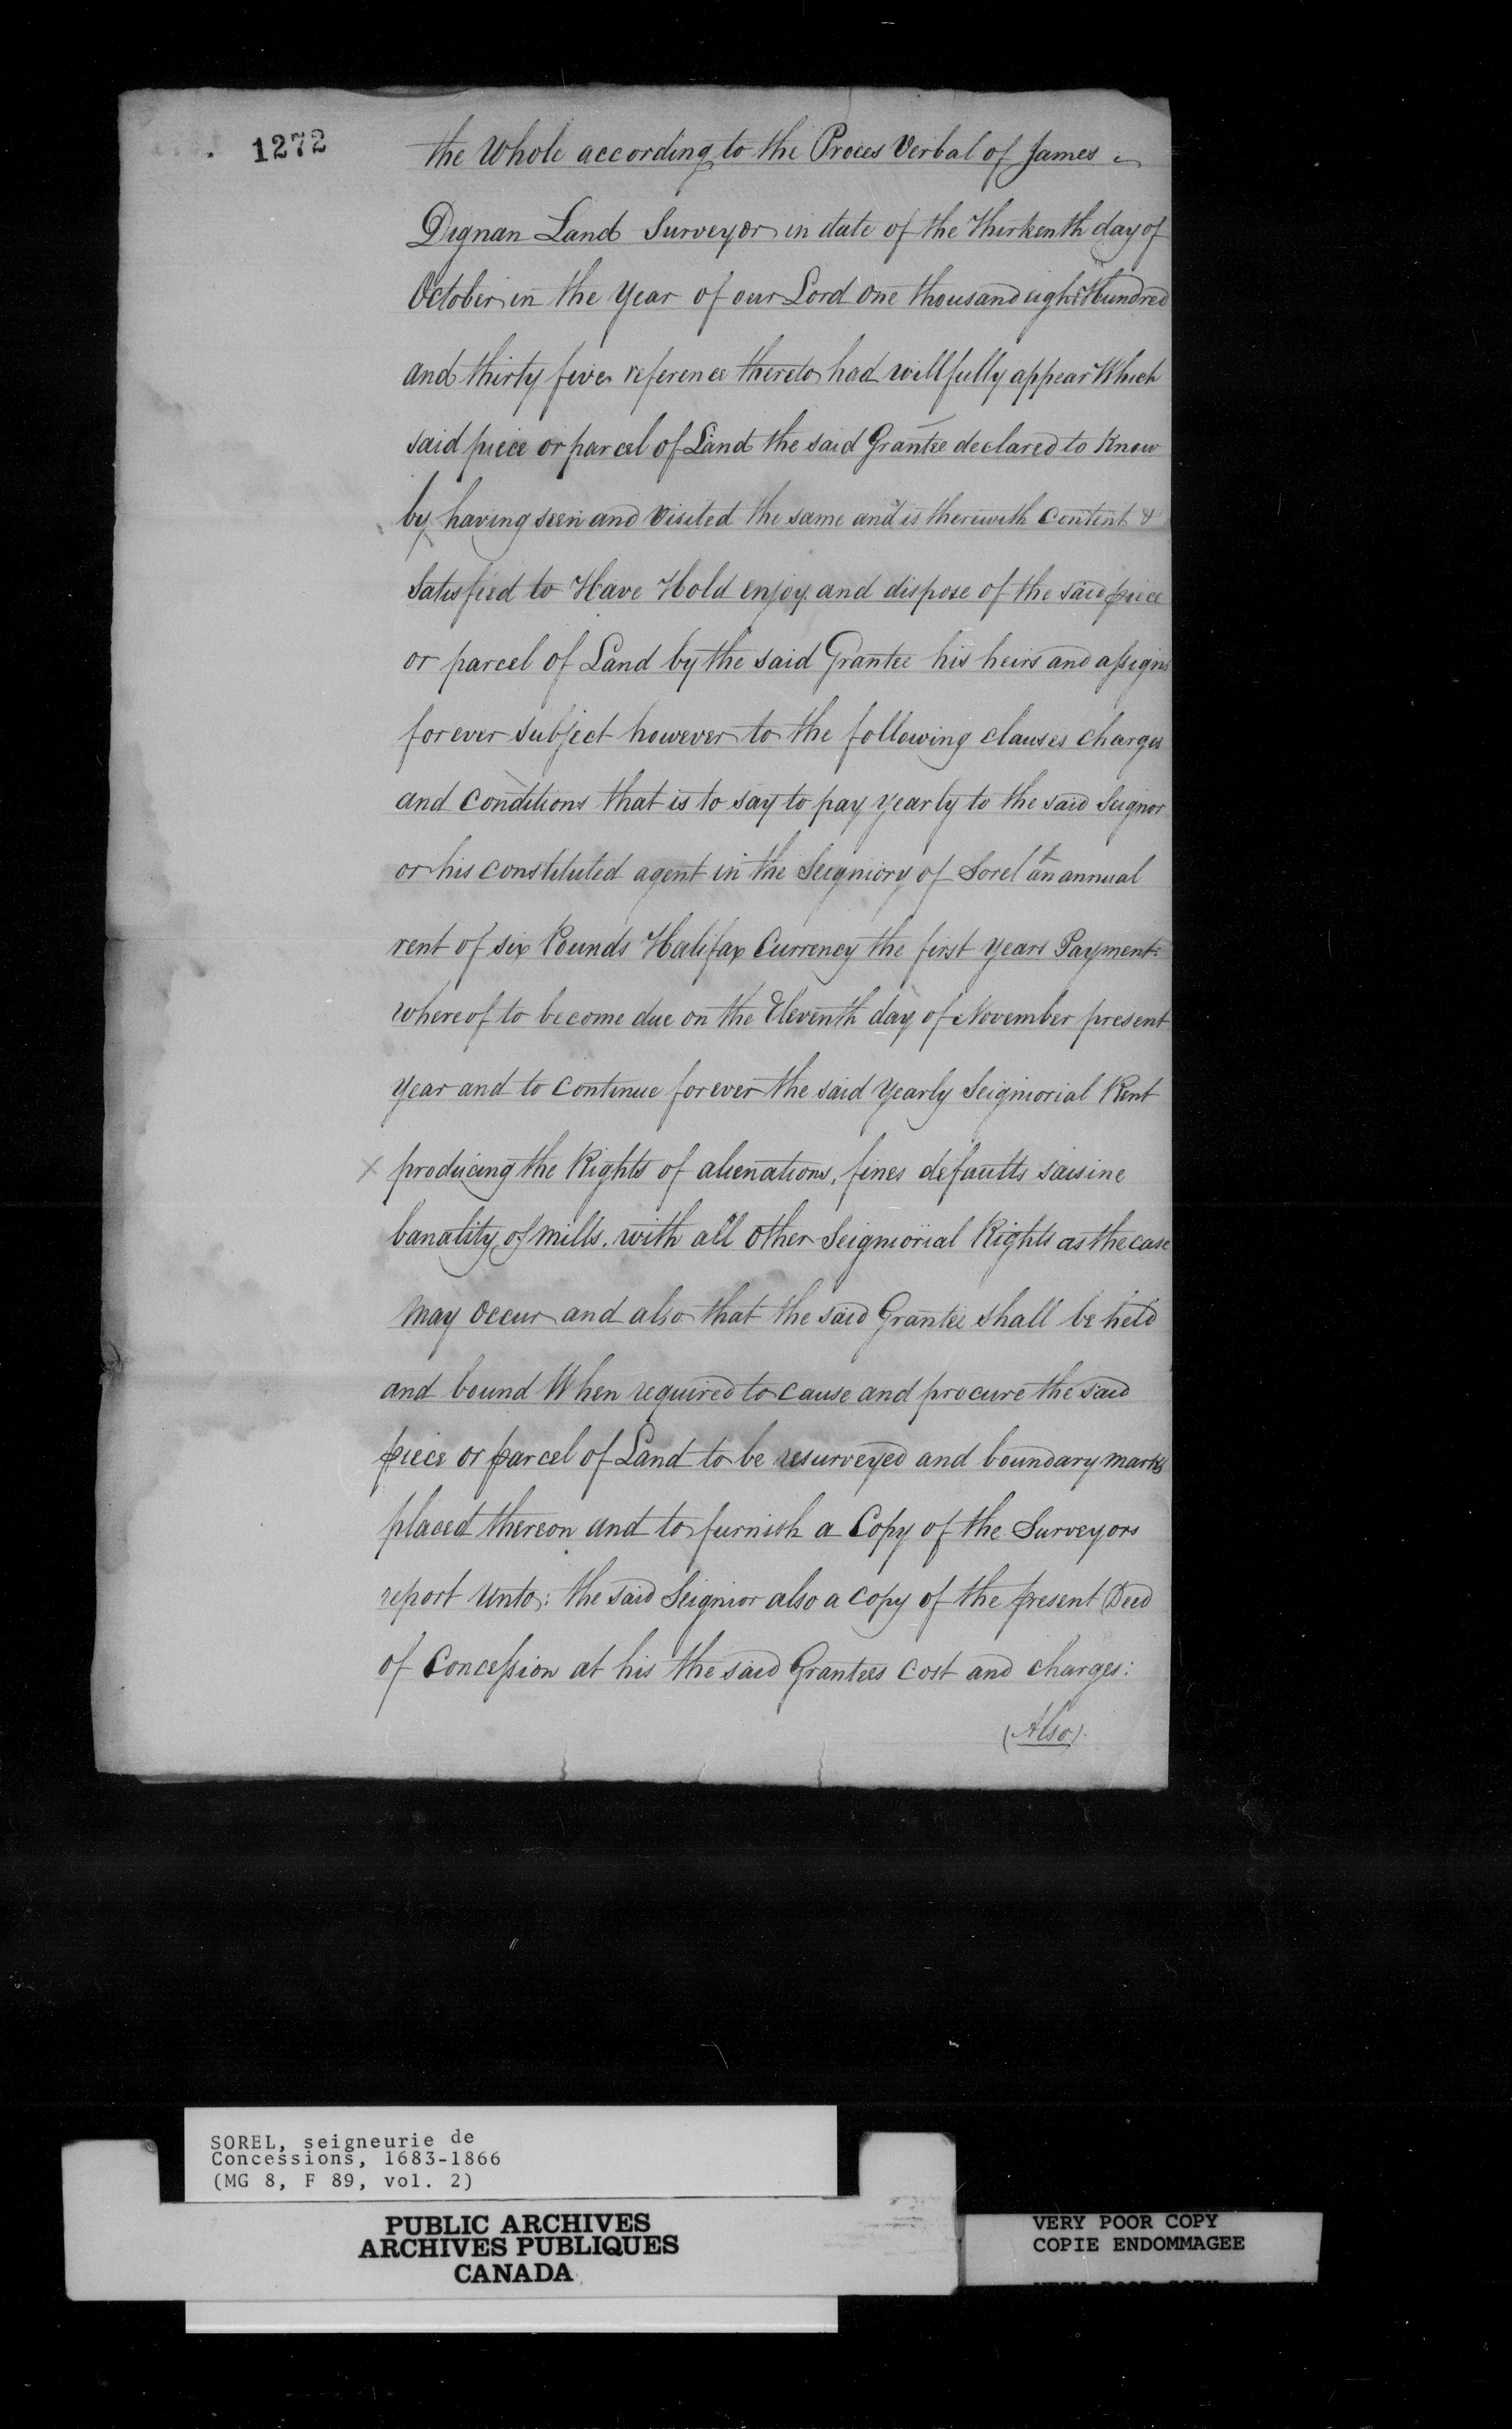 1272
the Whole according to the Proces Verbal of James
Dignan Land Surveyor in date of the Thirteenth day of
October in the Year of our Lord One thousand eight Hundred
and thirty five reference thereto had will fully appear Which
said piece or parcel of Land the said Grantee declared to Know
by having seen and Visited the same and is therewith Content &
Satisfied to Have Hold enjoy and dispose of the said piece
or parcel of Land by the said Grantee his heirs and assigns
forever subject however to the following clauses charges
and Conditions that is to say to pay yearly to the said Seignor
or his constituted agent in the Seigniory of Sorel an annual
rent of six Pounds Halifax Currency the first years Payment
whereof to become due on the Eleventh day of November present
Year and to Continue forever the said Yearly Seigniorial Rent
X producing the Rights of alienations, fines defaults saisine
banality of mills, with all Other Seigniorial Rights as the case
May Occur and also that the said Grantee shall be held
and bound When required to cause and procure the said
piece or parcel of Land to be resurveyed and boundary marks
placed thereon and to furnish a Copy of the Surveyors
report Unto: the said Seignior also a copy of the present Deed
of Concession at his the said Grantees Cost and charges:
(Also)
SOREL, seigneurie de
Concessions, 1683-1866
(MG 8, F 89, vol. 2)
PUBLIC ARCHIVES
ARCHIVES PUBLIQUES
CANADA
VERY POOR COPY
COPIE ENDOMMAGEE